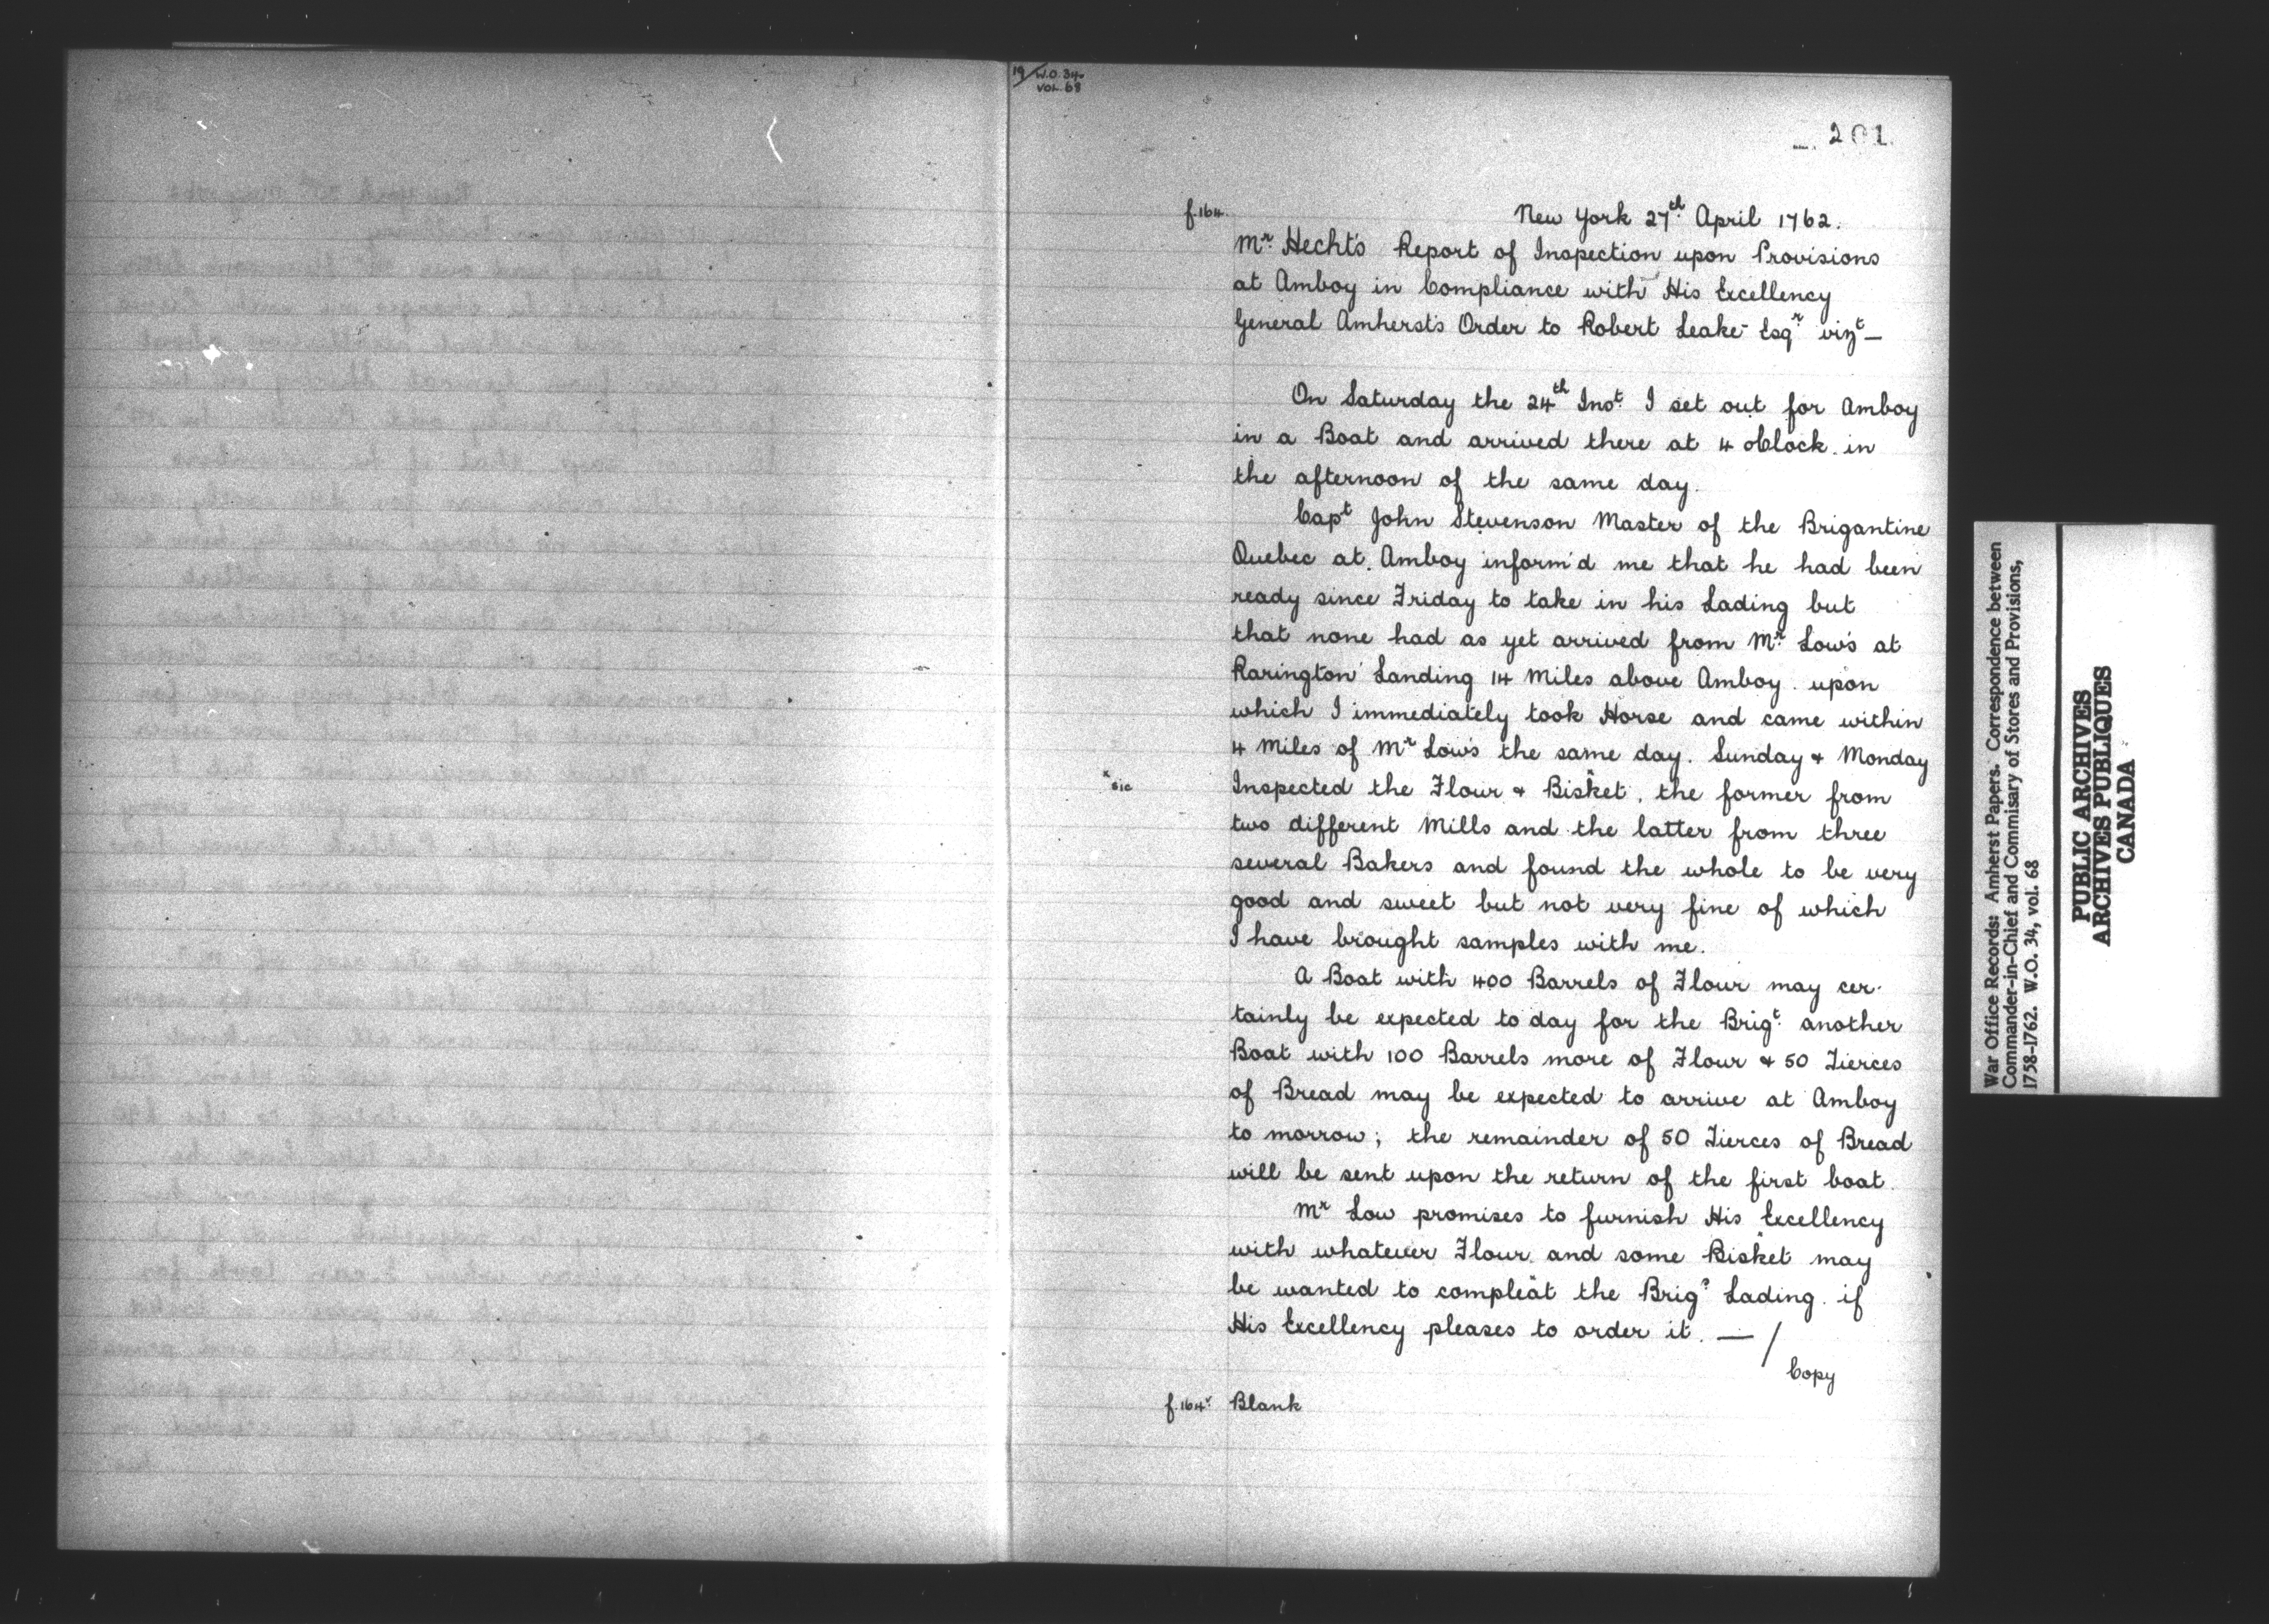 19/ W.O. 34.
VOL. 68
201
f.164.
New York 27th April 1762.
Mr. Hecht's Report of Inspection upon Provisions
at Amboy in Compliance with His Excellency
General Amherst's Order to Robert Leake Esqr vizt —
On Saturday the 24th Inst. I set out for Amboy
in a Boat and arrived there at 4 oClock in
the afternoon of the same day.
Capt John Stevenson Master of the Brigantine
Quebec at Amboy inform'd me that he had been
ready since Friday to take in his Lading but
that none had as yet arrived from Mr. Low's at
Rarington Landing 14 Miles above Amboy. upon
which I immediately took Horse and came within
4 Miles of Mr Low's the same day. Sunday & Monday
x sic
Inspected the Flour & Bisket, the former from
two different Mills and the latter from three
several Bakers and found the whole to be very
good and sweet but not very fine of which
I have brought samples with me.
A Boat with 400 Barrels of Flour may cer-
tainly be expected to day for the Brigt. another
Boat with 100 Barrels more of Flour & 50 Tierces
of Bread may be expected to arrive at Amboy
to morrow; the remainder of 50 Tierces of Bread
will be sent upon the return of the first boat.
Mr Low promises to furnish His Excellency
with whatever Flour and some Bisket may
be wanted to compleat the Brigs Lading if
His Excellency pleases to order it. — /
Copy
f.164v. Blank
War Office Records: Amherst Papers. Correspondence between
Commander-in-Chief and Commisary of Stores and Provisions,
1758-1762. W.O. 34, vol. 68
PUBLIC ARCHIVES
ARCHIVES PUBLIQUES
CANADA